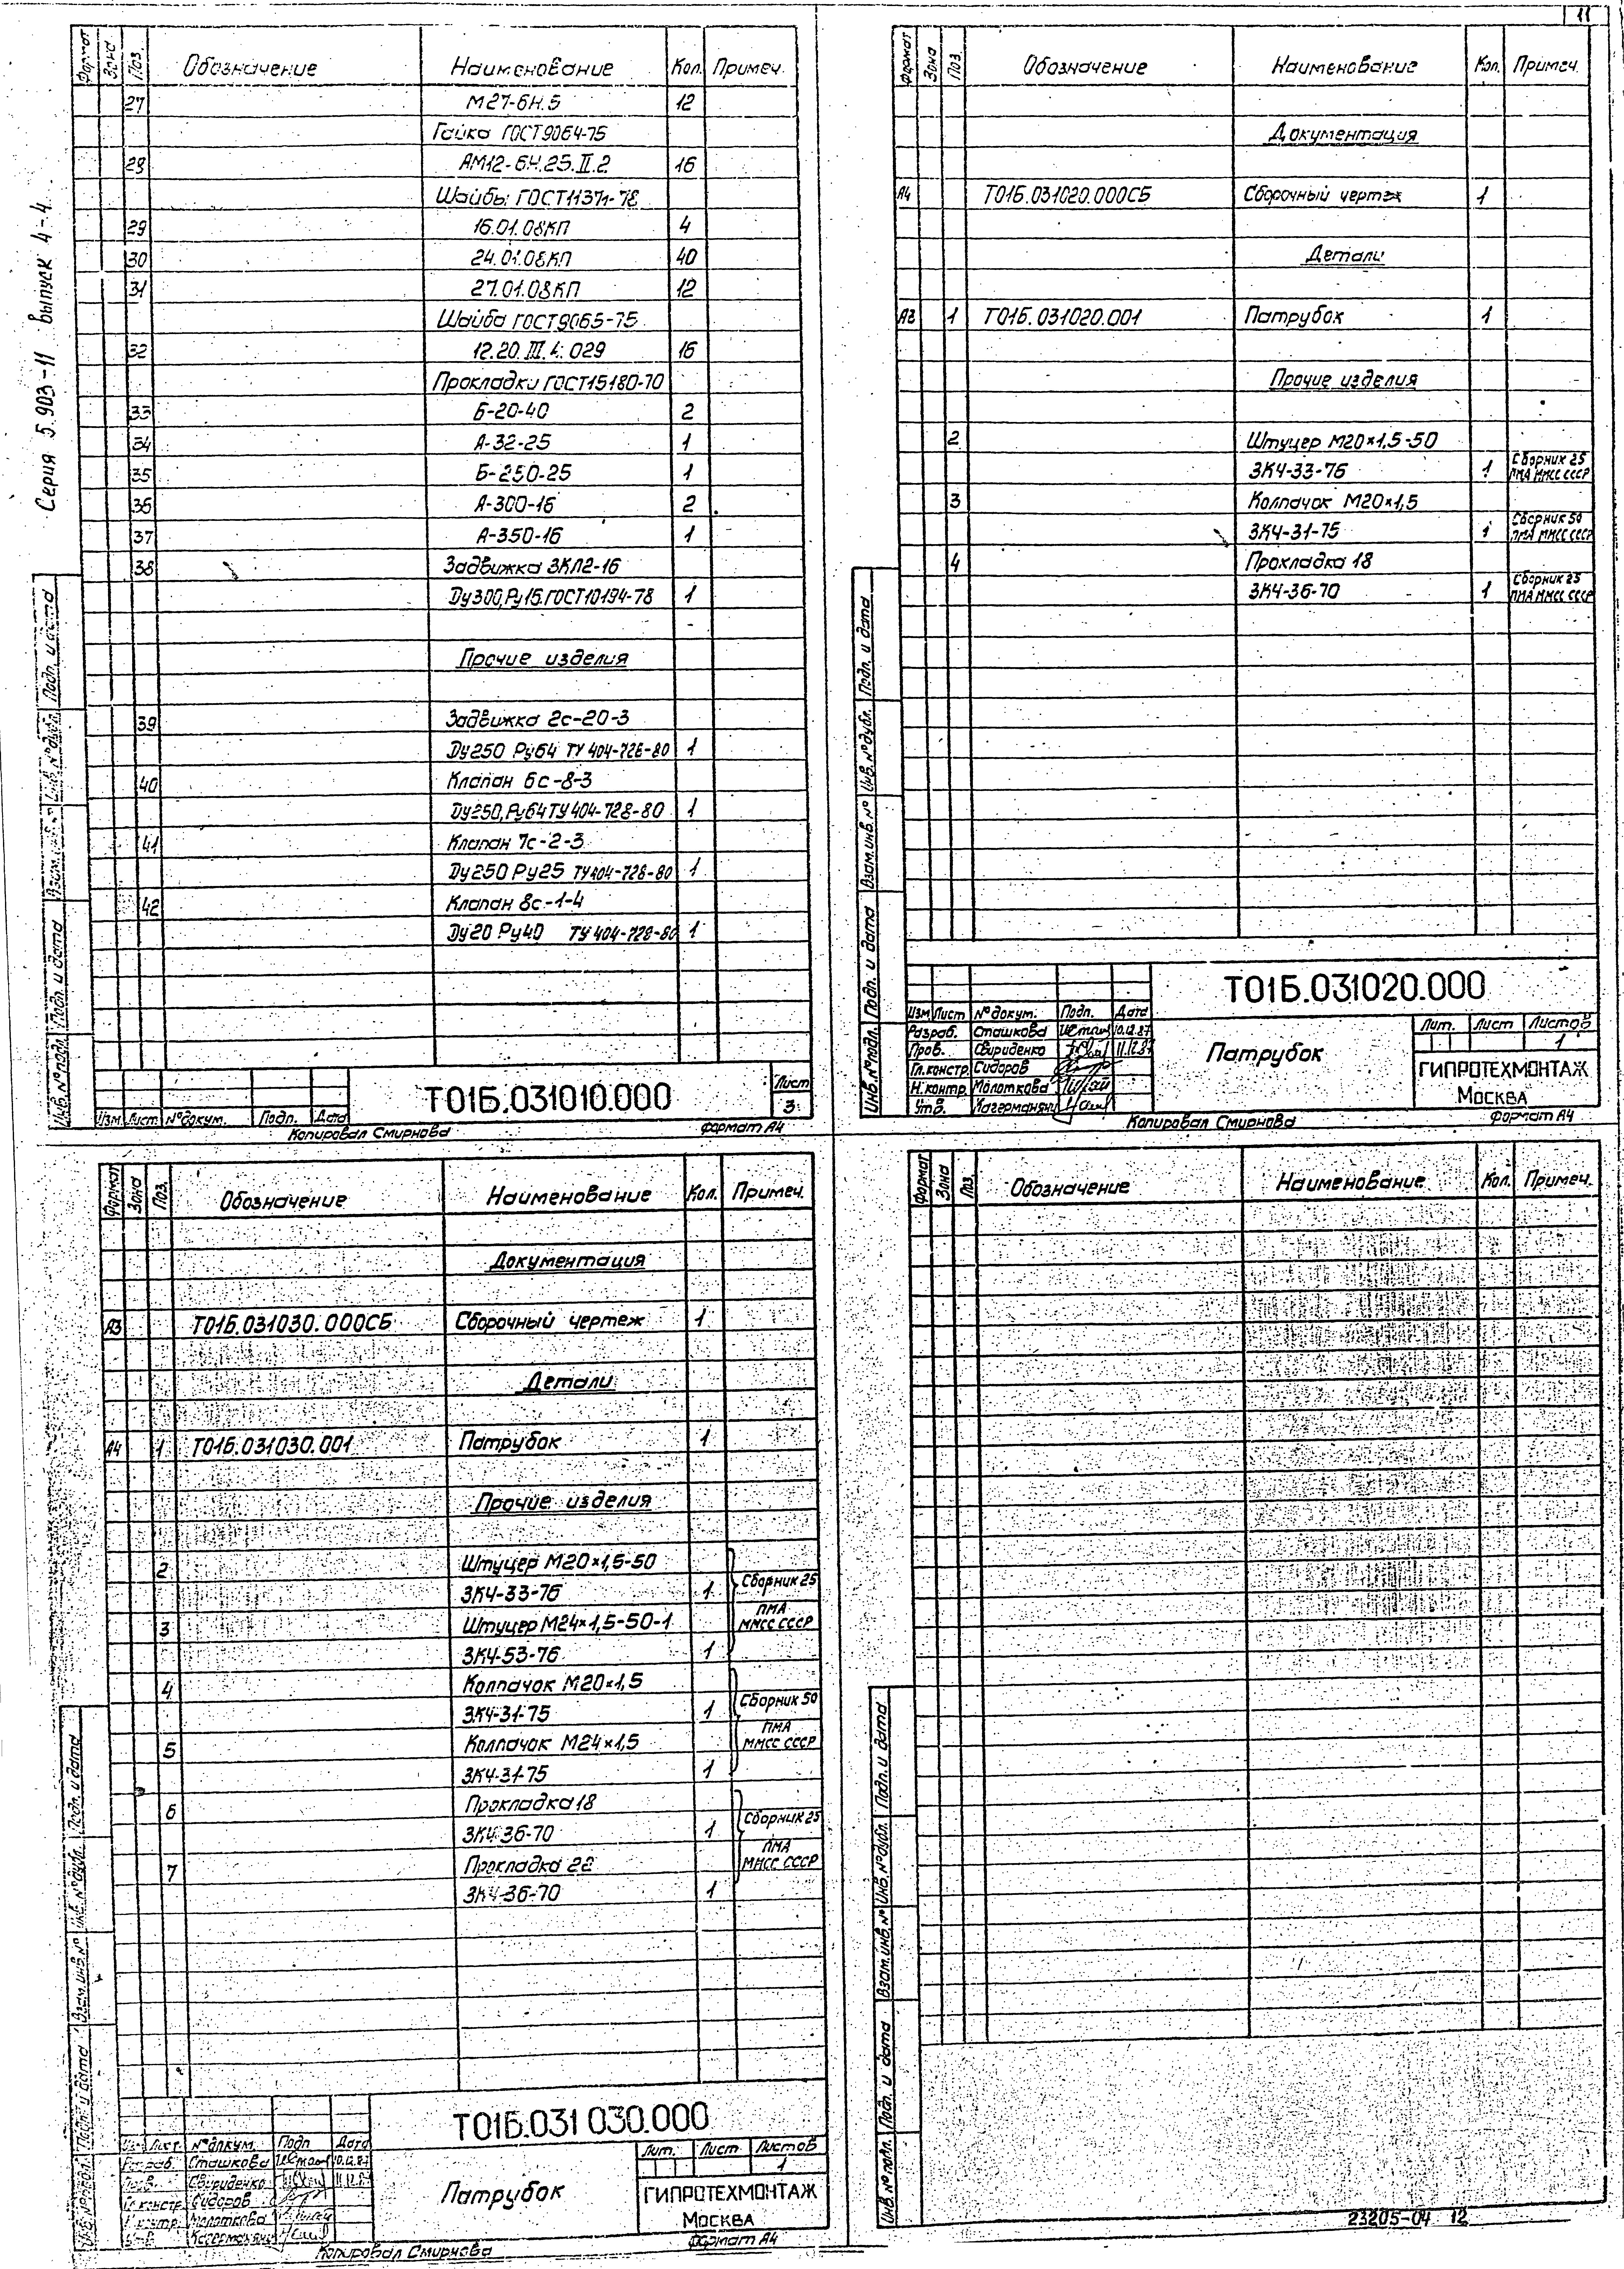 11
Серия 5.903-11 выпуск 4-4
Формат Зона Поз. Обозначение Наименование Кол. Примеч.
27 М27-6Н.5 12
Гайка ГОСТ9064-75
28 АМ12-6Н.25.II.2 16
Шайбы ГОСТ11371-78
29 16.01.08КП 4
30 24.01.08КП 40
31 27.01.08КП 12
Шайба ГОСТ9065-75
32 12.20.III.4.029 16
Прокладки ГОСТ15180-70
33 Б-20-40 2
34 А-32-25 1
35 Б-250-25 1
36 А-300-16 2
37 А-350-16 1
38 Задвижка ЗКЛ2-16
Dу300,Ру16.ГОСТ10194-78 1
Прочие изделия
39 Задвижка 2с-20-3
Dу250 Ру64 ТУ 404-728-80 1
40 Клапан 6с-8-3
Dу250,Ру64 ТУ 404-728-80 1
41 Клапан 7с-2-3
Dу250 Ру25 ТУ404-728-80 1
42 Клапан 8с-1-4
Dу20 Ру40 ТУ 404-728-80 1
Инв.№подл. Подп. и дата Взам.инв.№ Инв.№дубл. Подп. и дата
Изм. Лист №докум. Подп. Дата
Т01Б.031010.000
Лист
3
Копировал Смирнова Формат А4
Формат Зона Поз. Обозначение Наименование Кол. Примеч.
Документация
А4 Т01Б.031020.000СБ Сборочный чертеж 1
Детали
А3 1 Т01Б.031020.001 Патрубок 1
Прочие изделия
2 Штуцер М20×1,5-50
ЗК4-33-76 1 Сборник 25 ПМА ММСС СССР
3 Колпачок М20×1,5
ЗК4-31-75 1 Сборник 50 ПМА ММСС СССР
4 Прокладка 18
ЗК4-36-70 1 Сборник 25 ПМА ММСС СССР
Инв.№подл. Подп. и дата Взам.инв.№ Инв.№дубл. Подп. и дата
Т01Б.031020.000
Изм Лист №докум. Подп. Дата
Разраб. Сташкова 10.12.87
Пров. Свириденко 11.12.87
Гл.констр. Сидоров
Н.контр. Молоткова
Утв. Кагерманян
Патрубок
Лит. Лист Листов
1
ГИПРОТЕХМОНТАЖ
Москва
Копировал Смирнова Формат А4
Формат Зона Поз. Обозначение Наименование Кол. Примеч.
Документация
А3 Т01Б.031030.000СБ Сборочный чертеж 1
Детали
А4 1 Т01Б.031030.001 Патрубок 1
Прочие изделия
2 Штуцер М20×1,5-50
ЗК4-33-76 1 Сборник 25
3 Штуцер М24×1,5-50-1 ПМА ММСС СССР
ЗК4-53-76 1
4 Колпачок М20×1,5
ЗК4-31-75 1 Сборник 50
5 Колпачок М24×1,5 ПМА ММСС СССР
ЗК4-31-75 1
6 Прокладка 18
ЗК4-36-70 1 Сборник 25
7 Прокладка 22 ПМА ММСС СССР
ЗК4-36-70 1
Инв.№подл. Подп. и дата Взам.инв.№ Инв.№дубл. Подп. и дата
Т01Б.031 030.000
Изм Лист №докум. Подп Дата
Разраб. Сташкова 10.12.87
Пров. Свириденко 11.12.87
Гл.констр. Сидоров
Н.контр. Молоткова
Утв. Кагерманян
Патрубок
Лит. Лист Листов
1
ГИПРОТЕХМОНТАЖ
Москва
Копировал Смирнова Формат А4
Формат Зона Поз. Обозначение Наименование Кол. Примеч.
Инв.№подл. Подп. и дата Взам.инв.№ Инв.№дубл. Подп. и дата
23205-04 12